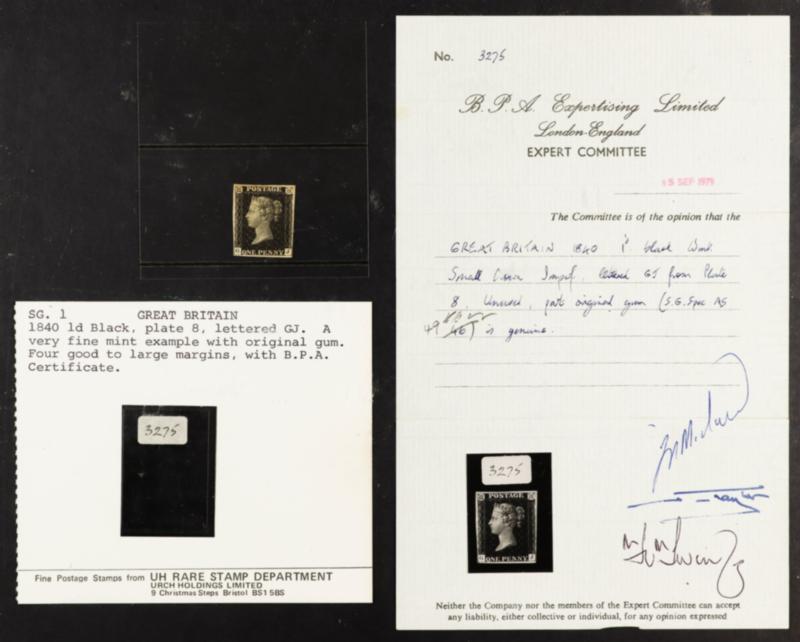 POSTAGE
G J
ONE PENNY
SG. 1 GREAT BRITAIN
1840 1d Black, plate 8, lettered GJ. A
very fine mint example with original gum.
Four good to large margins, with B.P.A.
Certificate.
3275
Fine Postage Stamps from UH RARE STAMP DEPARTMENT
URCH HOLDINGS LIMITED
9 Christmas Steps Bristol BS1 5BS
No. 3275
B.P.A. Expertising Limited
London-England
EXPERT COMMITTEE
15 SEP 1979
The Committee is of the opinion that the
GREAT BRITAIN 1840 1d black Wmk
Small Crown Imperf, lettered GJ from Plate
8, Unused, part original gum (S.G. Spec AS
49 is genuine.
3275
POSTAGE
G J
ONE PENNY
Neither the Company nor the members of the Expert Committee can accept
any liability, either collective or individual, for any opinion expressed